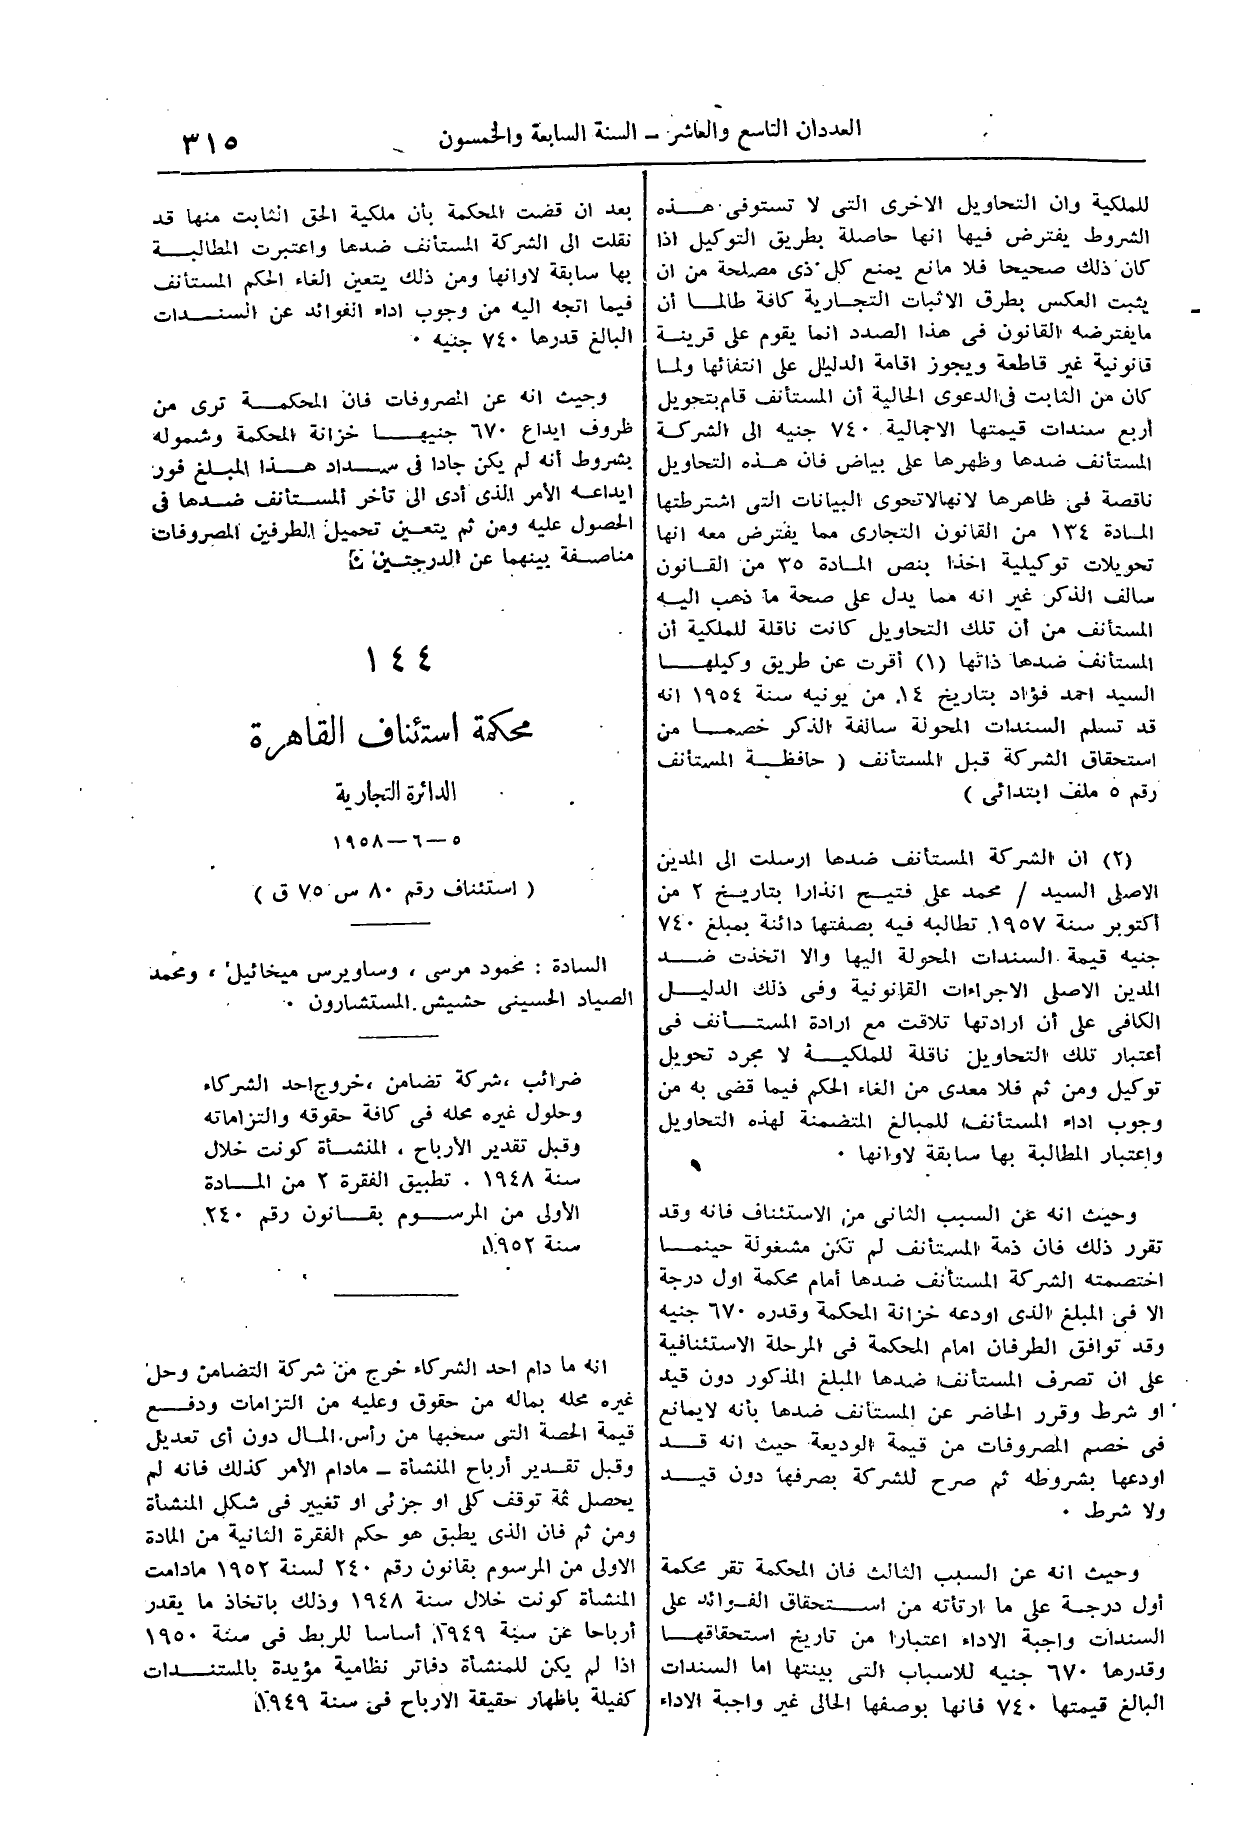 العددان التاسع والعاشر — السنة السابعة والخمسون
٣١٥
للملكية وان التحاويل الاخرى التى لا تستوفى هـذه
الشروط يفترض فيها انها حاصلة بطريق التوكيل اذا
كان ذلك صحيحا فلا مانع يمنع كل ذى مصلحة من ان
يثبت العكس بطرق الاثبات التجارية كافة طالما أن
مايفترضه القانون فى هذا الصدد انما يقوم على قرينة
قانونية غير قاطعة ويجوز اقامة الدليل على انتفائها ولما
كان من الثابت فى الدعوى الحالية أن المستأنف قام بتحويل
أربع سندات قيمتها الاجمالية ٧٤٠ جنيه الى الشركة
المستأنف ضدها وظهرها على بياض فان هذه التحاويل
ناقصة فى ظاهرها لانها لاتحوى البيانات التى اشترطتها
المادة ١٣٤ من القانون التجارى مما يفترض معه انها
تحويلات توكيلية اخذا بنص المادة ٣٥ من القانون
سالف الذكر غير انه مما يدل على صحة ما ذهب اليه
المستأنف من أن تلك التحاويل كانت ناقلة للملكية أن
المستأنف ضدها ذاتها (١) أقرت عن طريق وكيلها
السيد احمد فؤاد بتاريخ ١٤ من يونيه سنة ١٩٥٤ انه
قد تسلم السندات المحولة سالفة الذكر خصما من
استحقاق الشركة قبل المستأنف ( حافظة المستأنف
رقم ٥ ملف ابتدائى )
(٢) ان الشركة المستأنف ضدها ارسلت الى المدين
الاصلى السيد / محمد على فتيح انذارا بتاريخ ٢ من
أكتوبر سنة ١٩٥٧ تطالبه فيه بصفتها دائنة بمبلغ ٧٤٠
جنيه قيمة السندات المحولة اليها والا اتخذت ضد
المدين الاصلى الاجراءات القانونية وفى ذلك الدليل
الكافى على أن ارادتها تلاقت مع ارادة المستأنف فى
أعتبار تلك التحاويل ناقلة للملكية لا مجرد تحويل
توكيل ومن ثم فلا معدى من الغاء الحكم فيما قضى به من
وجوب اداء المستأنف للمبالغ المتضمنة لهذه التحاويل
واعتبار المطالبة بها سابقة لاوانها ٠
وحيث انه عن السبب الثانى من الاستئناف فانه وقد
تقرر ذلك فان ذمة المستأنف لم تكن مشغولة حينما
اختصمته الشركة المستأنف ضدها أمام محكمة اول درجة
الا فى المبلغ الذى اودعه خزانة المحكمة وقدره ٦٧٠ جنيه
وقد توافق الطرفان امام المحكمة فى المرحلة الاستئنافية
على ان تصرف المستأنف ضدها المبلغ المذكور دون قيد
او شرط وقرر الحاضر عن المستأنف ضدها بأنه لايمانع
فى خصم المصروفات من قيمة الوديعة حيث انه قد
اودعها بشروطه ثم صرح للشركة بصرفها دون قيد
ولا شرط ٠
وحيث انه عن السبب الثالث فان المحكمة تقر محكمة
أول درجة على ما ارتأته من استحقاق الفوائد على
السندات واجبة الاداء اعتبارا من تاريخ استحقاقها
وقدرها ٦٧٠ جنيه للاسباب التى بينتها اما السندات
البالغ قيمتها ٧٤٠ فانها بوصفها الحالى غير واجبة الاداء
بعد ان قضت المحكمة بأن ملكية الحق الثابت منها قد
نقلت الى الشركة المستأنف ضدها واعتبرت المطالبة
بها سابقة لاوانها ومن ذلك يتعين الغاء الحكم المستأنف
فيما اتجه اليه من وجوب اداء الفوائد عن السندات
البالغ قدرها ٧٤٠ جنيه ٠
وحيث انه عن المصروفات فان المحكمة ترى من
ظروف ايداع ٦٧٠ جنيها خزانة المحكمة وشموله
بشروط أنه لم يكن جادا فى سداد هذا المبلغ فور
ايداعه الأمر الذى أدى الى تأخر المستأنف ضدها فى
الحصول عليه ومن ثم يتعين تحميل الطرفين المصروفات
مناصفة بينهما عن الدرجتين
١٤٤
محكمة استئناف القاهرة
الدائرة التجارية
٥—٦—١٩٥٨
( استئناف رقم ٨٠ س ٧٥ ق )
السادة : محمود مرسى ، وساويرس ميخائيل ، ومحمد
الصياد الحسينى حشيش المستشارون ٠
ضرائب ، شركة تضامن ، خروج احد الشركاء
وحلول غيره محله فى كافة حقوقه والتزاماته
وقبل تقدير الأرباح ، المنشأة كونت خلال
سنة ١٩٤٨ . تطبيق الفقرة ٢ من المادة
الأولى من المرسوم بقانون رقم ٢٤٠
سنة ١٩٥٢
انه ما دام احد الشركاء خرج من شركة التضامن وحل
غيره محله بماله من حقوق وعليه من التزامات ودفع
قيمة الحصة التى سحبها من رأس المال دون أى تعديل
وقبل تقدير أرباح المنشأة — مادام الأمر كذلك فانه لم
يحصل ثمة توقف كلى او جزئى او تغيير فى شكل المنشأة
ومن ثم فان الذى يطبق هو حكم الفقرة الثانية من المادة
الاولى من المرسوم بقانون رقم ٢٤٠ لسنة ١٩٥٢ مادامت
المنشأة كونت خلال سنة ١٩٤٨ وذلك باتخاذ ما يقدر
أرباحا عن سنة ١٩٤٩ أساسا للربط فى سنة ١٩٥٠
اذا لم يكن للمنشأة دفاتر نظامية مؤيدة بالمستندات
كفيلة باظهار حقيقة الارباح فى سنة ١٩٤٩